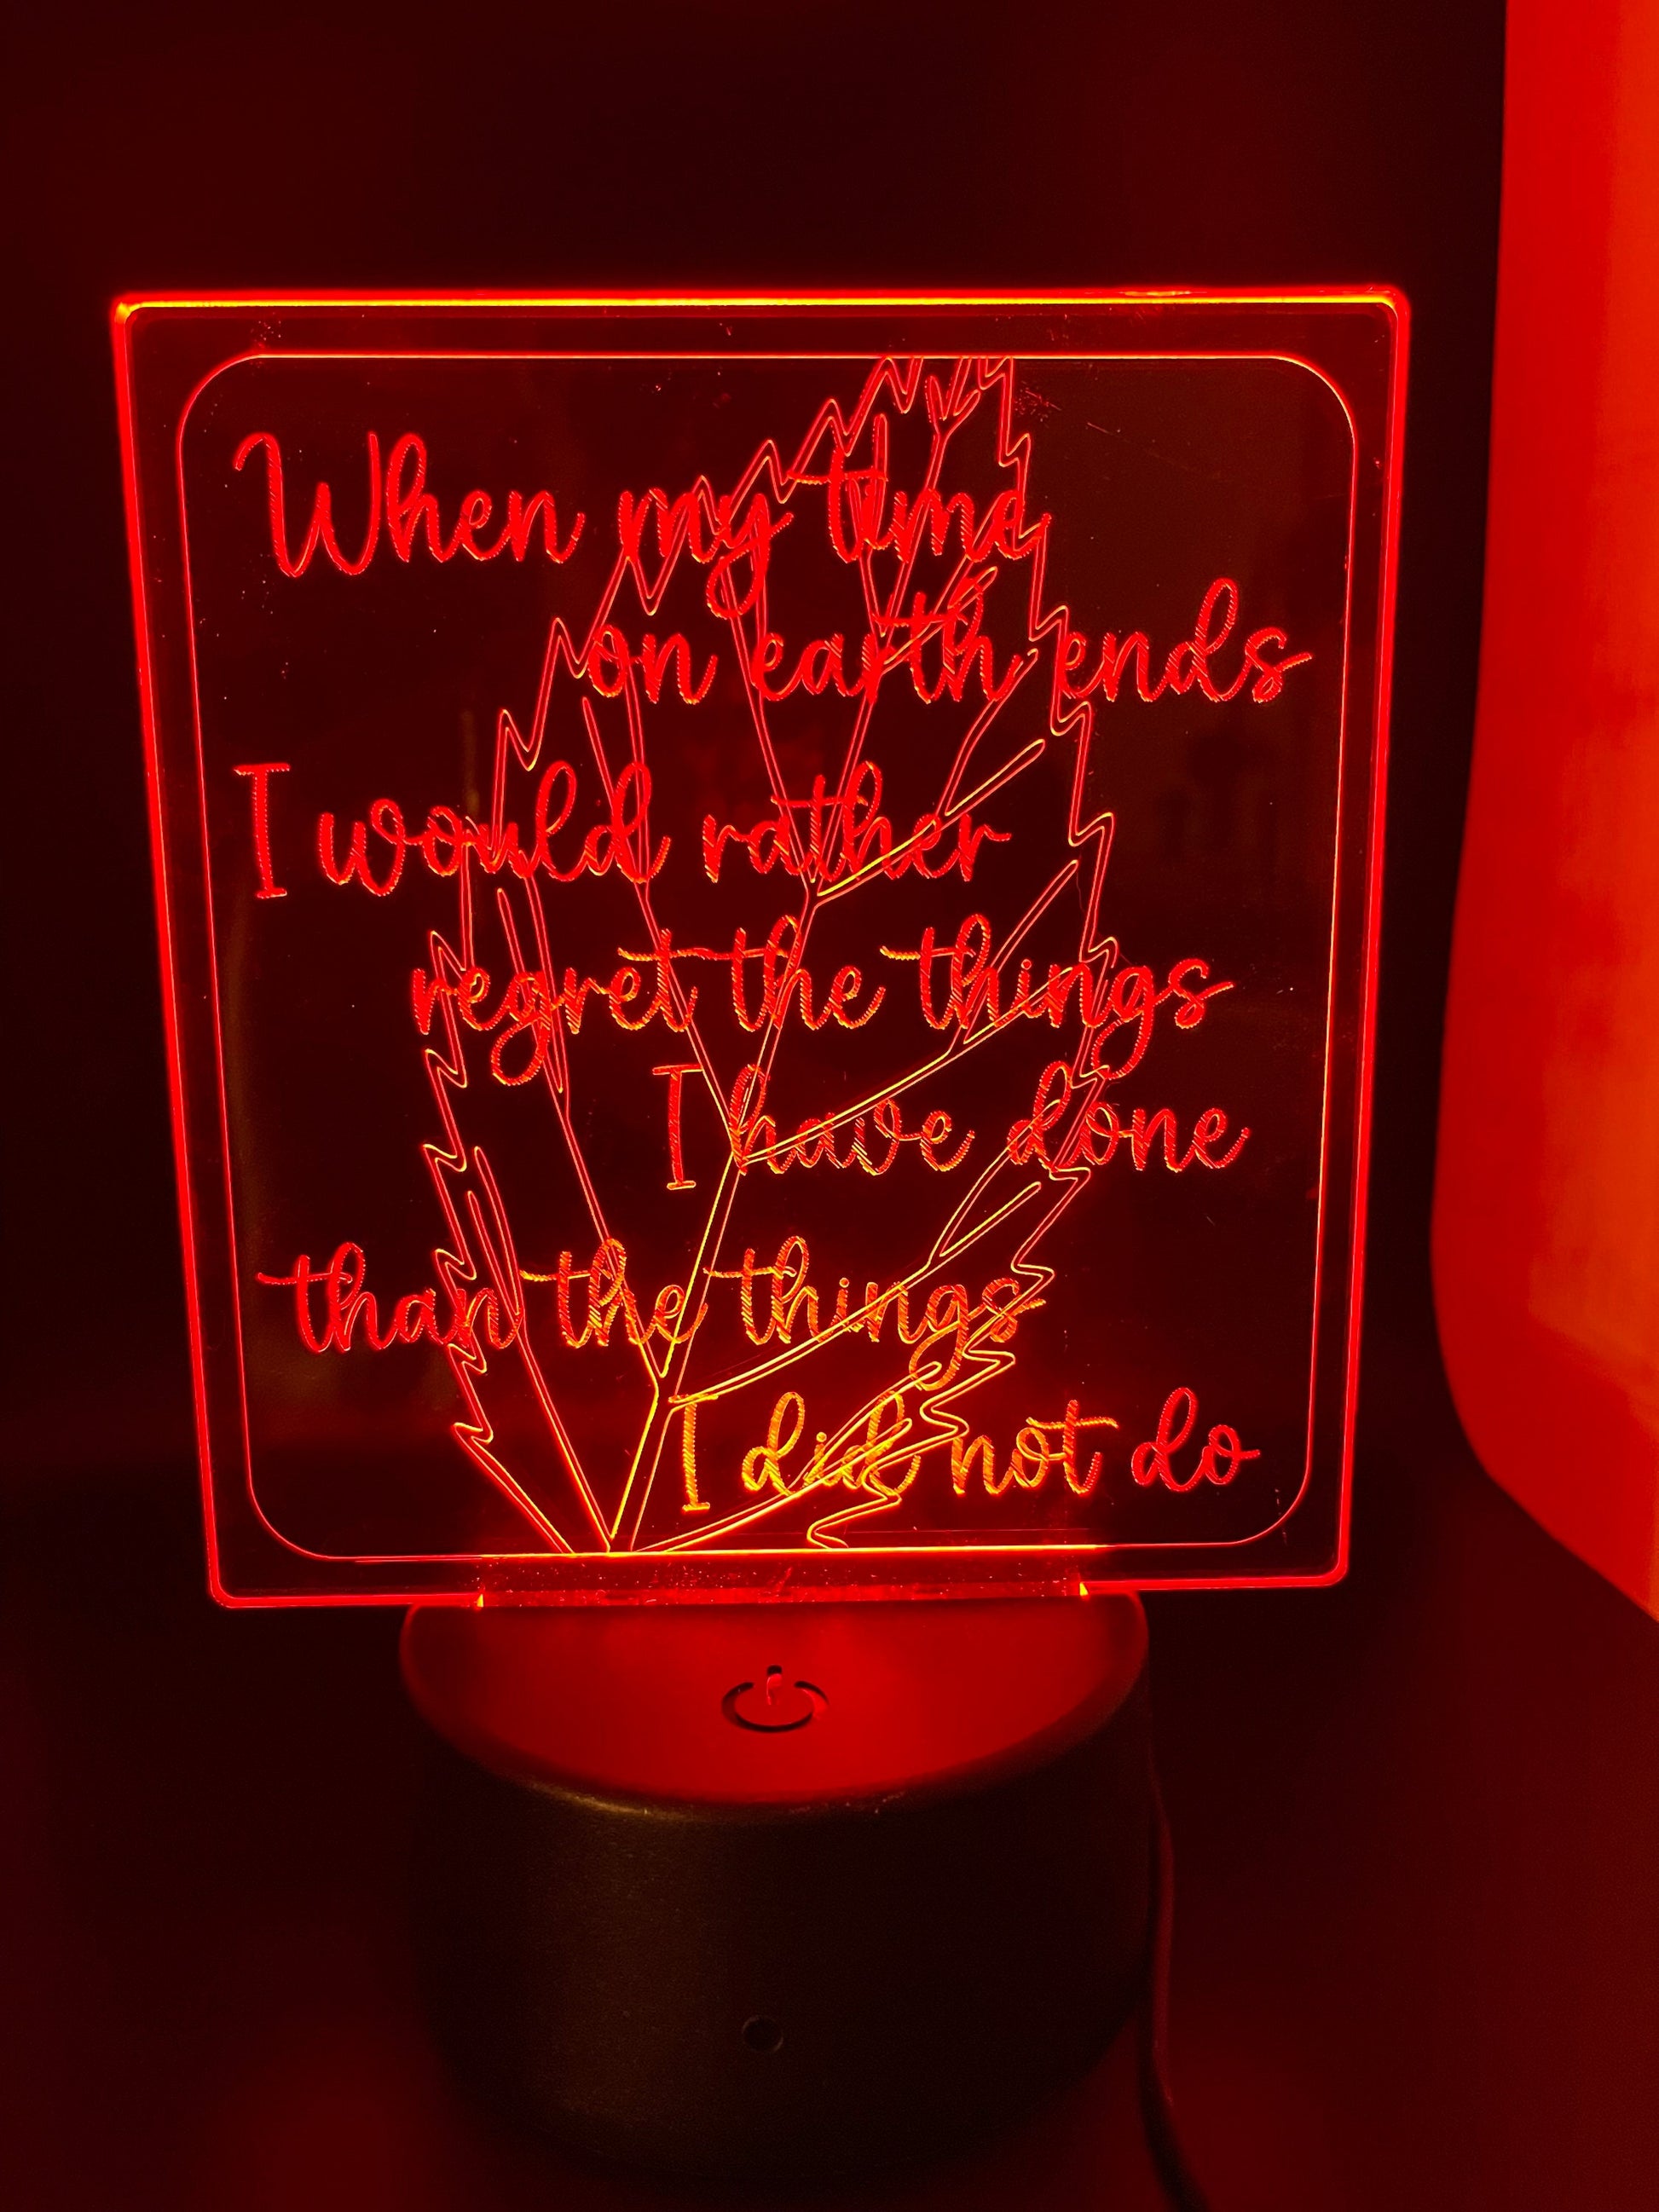 When my time
on earth ends
I would rather
regret the things
I have done
than the things
I did not do